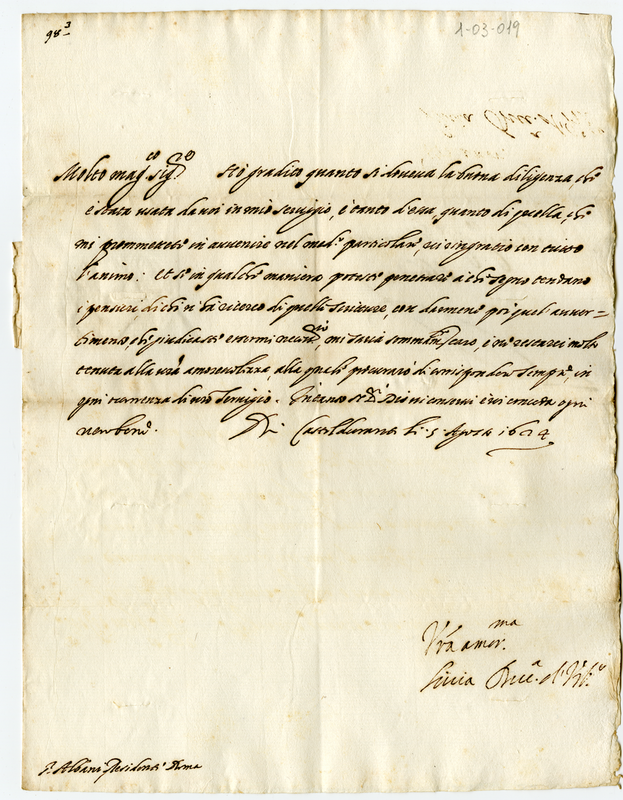 98 3
1-03-019
Molto mag.co sig.re Sto gradito quanto si doveva la buona diligenza, che
è stata usata da voi in mio servigio, e tanto d'essa, quanto di quella, che
mi promettete in avvenire nel med.o particolare, vi ringratio con tutto
l'animo: Et se in qualche maniera poteste penetrare à che segno tendano
i pensieri di chi vi fà ricerca di quelle scritture, con darmene poi quel auver=
timento che giudicaste essermi necess.rio, mi saria sommam.te caro, e ne restarei molto
tenuta alla vrã amorevolezza, alla quale procurarò di corrispondere sempre, in
ogni occorrenza di vro servigio. Intanto il S.r Dio vi conservi e vi conceda ogni
vero bene. Di Casteldurante li 5 Agosto 1624
Vrã amor.ma
Livia Duc.a d'Urb.o
S. Albani Residente Roma